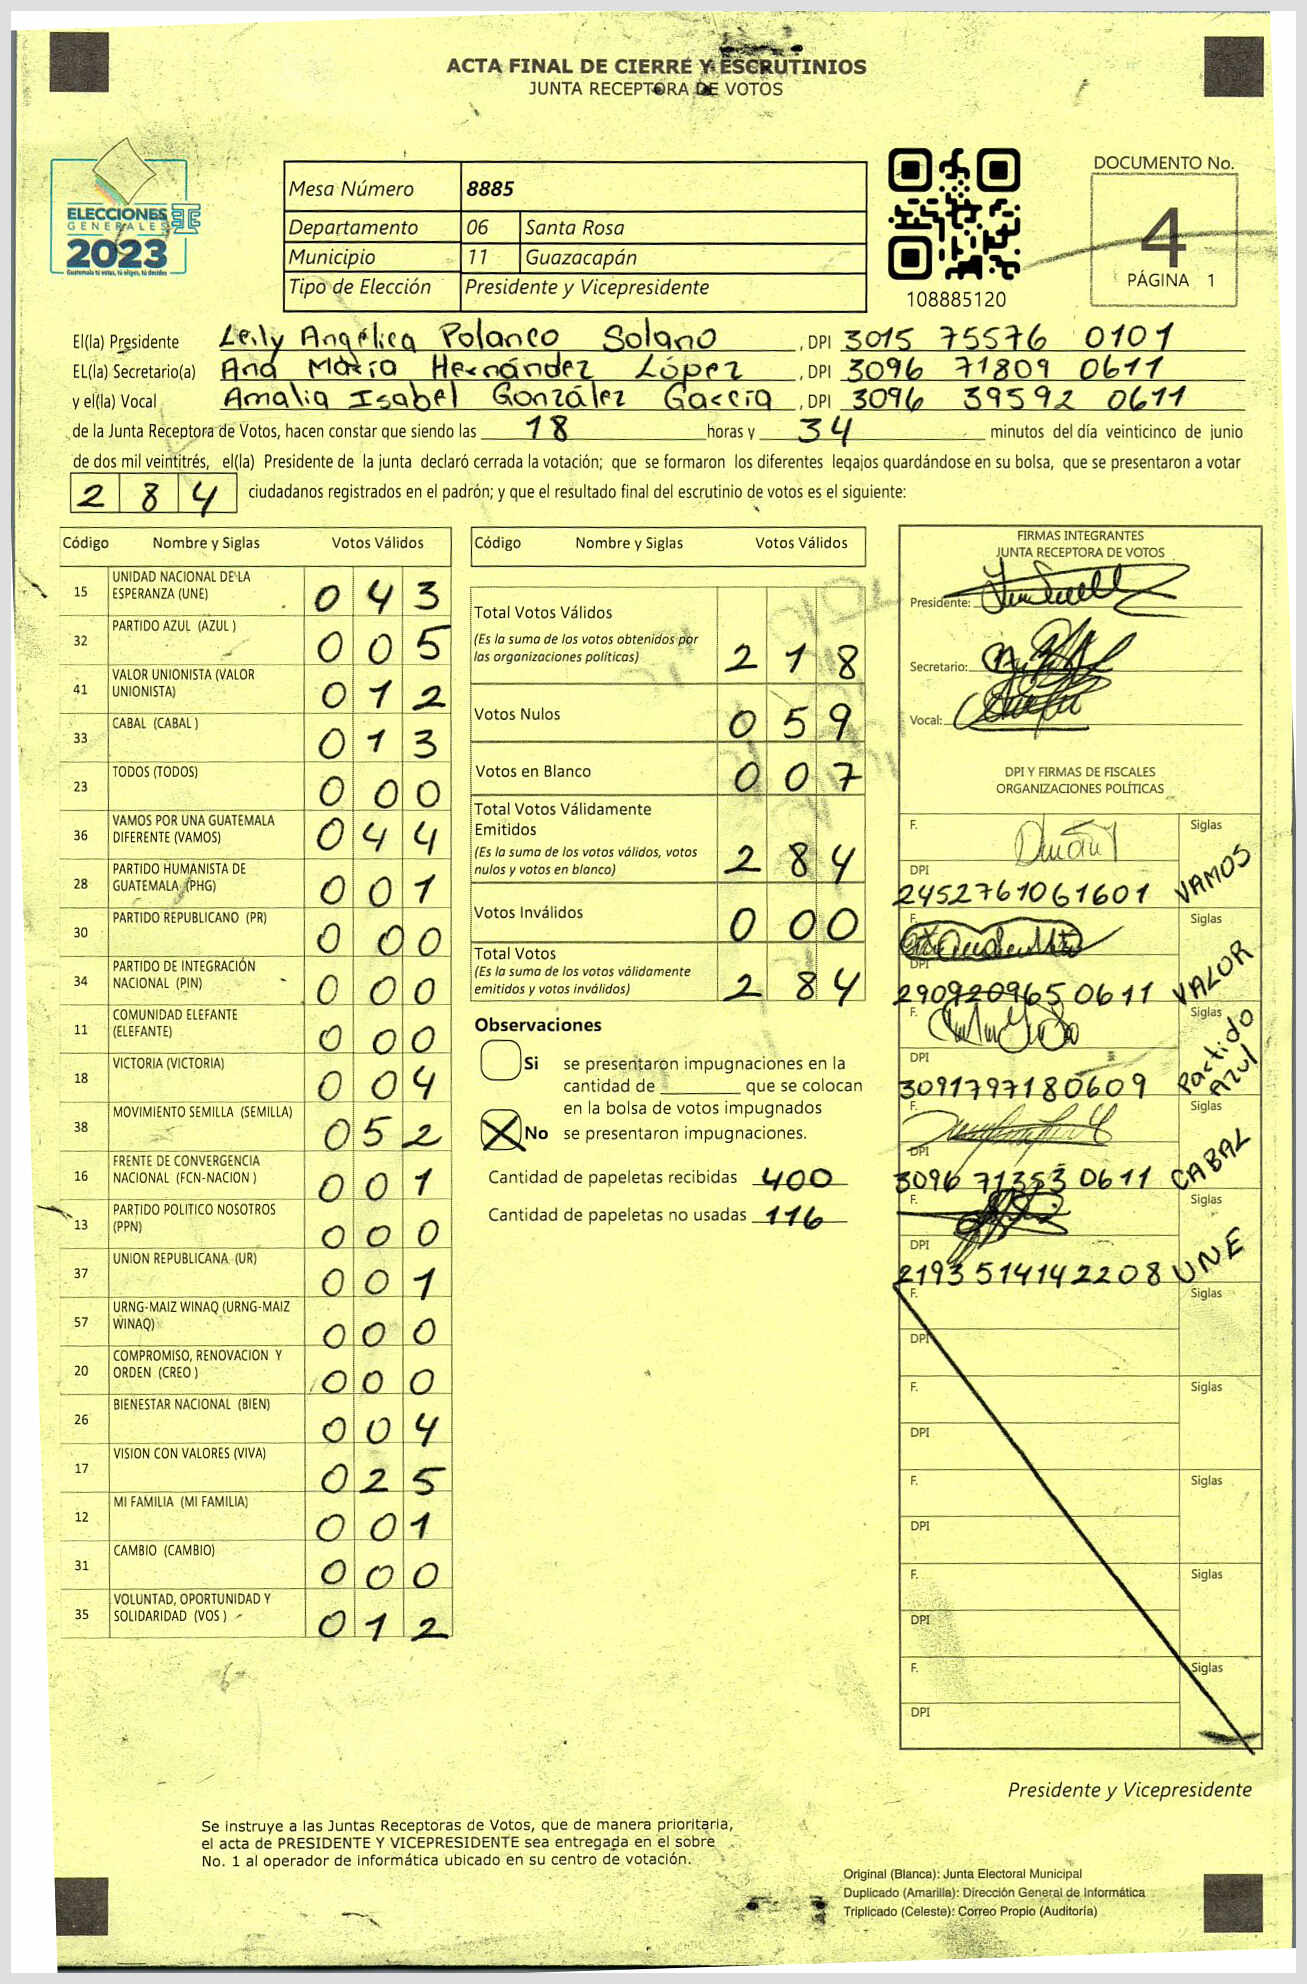 ACTA FINAL DE CIERRE Y ESCRUTINIOS
JUNTA RECEPTORA DE VOTOS
ELECCIONES
GENERALES
2023
Guatemala tú votas, tú eliges, tú decides
Mesa Número 8885
Departamento 06 Santa Rosa
Municipio 11 Guazacapán
Tipo de Elección Presidente y Vicepresidente
108885120
DOCUMENTO No.
4
PÁGINA 1
El(la) Presidente Leily Angélica Polanco Solano , DPI 3015 75576 0101
EL(la) Secretario(a) Ana María Hernández López , DPI 3096 71809 0611
y el(la) Vocal Amalia Isabel González García , DPI 3096 39592 0611
de la Junta Receptora de Votos, hacen constar que siendo las 18 horas y 34 minutos del día veinticinco de junio
de dos mil veintitrés, el(la) Presidente de la junta declaró cerrada la votación; que se formaron los diferentes legajos guardándose en su bolsa, que se presentaron a votar
284 ciudadanos registrados en el padrón; y que el resultado final del escrutinio de votos es el siguiente:
Código Nombre y Siglas Votos Válidos
15 UNIDAD NACIONAL DE LA ESPERANZA (UNE) 043
32 PARTIDO AZUL (AZUL ) 005
41 VALOR UNIONISTA (VALOR UNIONISTA) 012
33 CABAL (CABAL ) 013
23 TODOS (TODOS) 000
36 VAMOS POR UNA GUATEMALA DIFERENTE (VAMOS) 044
28 PARTIDO HUMANISTA DE GUATEMALA (PHG) 001
30 PARTIDO REPUBLICANO (PR) 000
34 PARTIDO DE INTEGRACIÓN NACIONAL (PIN) 000
11 COMUNIDAD ELEFANTE (ELEFANTE) 000
18 VICTORIA (VICTORIA) 004
38 MOVIMIENTO SEMILLA (SEMILLA) 052
16 FRENTE DE CONVERGENCIA NACIONAL (FCN-NACION ) 001
13 PARTIDO POLITICO NOSOTROS (PPN) 000
37 UNION REPUBLICANA (UR) 001
57 URNG-MAIZ WINAQ (URNG-MAIZ WINAQ) 000
20 COMPROMISO, RENOVACION Y ORDEN (CREO ) 000
26 BIENESTAR NACIONAL (BIEN) 004
17 VISION CON VALORES (VIVA) 025
12 MI FAMILIA (MI FAMILIA) 001
31 CAMBIO (CAMBIO) 000
35 VOLUNTAD, OPORTUNIDAD Y SOLIDARIDAD (VOS ) 012
Código Nombre y Siglas Votos Válidos
Total Votos Válidos
(Es la suma de los votos obtenidos por
las organizaciones políticas) 218
Votos Nulos 059
Votos en Blanco 007
Total Votos Válidamente
Emitidos
(Es la suma de los votos válidos, votos
nulos y votos en blanco) 284
Votos Inválidos 000
Total Votos
(Es la suma de los votos válidamente
emitidos y votos inválidos) 284
Observaciones
Si se presentaron impugnaciones en la
cantidad de ________ que se colocan
en la bolsa de votos impugnados
X No se presentaron impugnaciones.
Cantidad de papeletas recibidas 400
Cantidad de papeletas no usadas 116
FIRMAS INTEGRANTES
JUNTA RECEPTORA DE VOTOS
Presidente:
Secretario:
Vocal:
DPI Y FIRMAS DE FISCALES
ORGANIZACIONES POLÍTICAS
F. Siglas
DPI
2452761061601 VAMOS
F. Siglas
DPI
290920965 0611 VALOR
F. Siglas
DPI
3091797180609 Partido Azul
F. Siglas
DPI
3096 71353 0611 CABAL
F. Siglas
DPI
2193514142208 UNE
F. Siglas
DPI
F. Siglas
DPI
F. Siglas
DPI
F. Siglas
DPI
F. Siglas
DPI
Presidente y Vicepresidente
Se instruye a las Juntas Receptoras de Votos, que de manera prioritaria,
el acta de PRESIDENTE Y VICEPRESIDENTE sea entregada en el sobre
No. 1 al operador de informática ubicado en su centro de votación.
Original (Blanca): Junta Electoral Municipal
Duplicado (Amarilla): Dirección General de Informática
Triplicado (Celeste): Correo Propio (Auditoría)